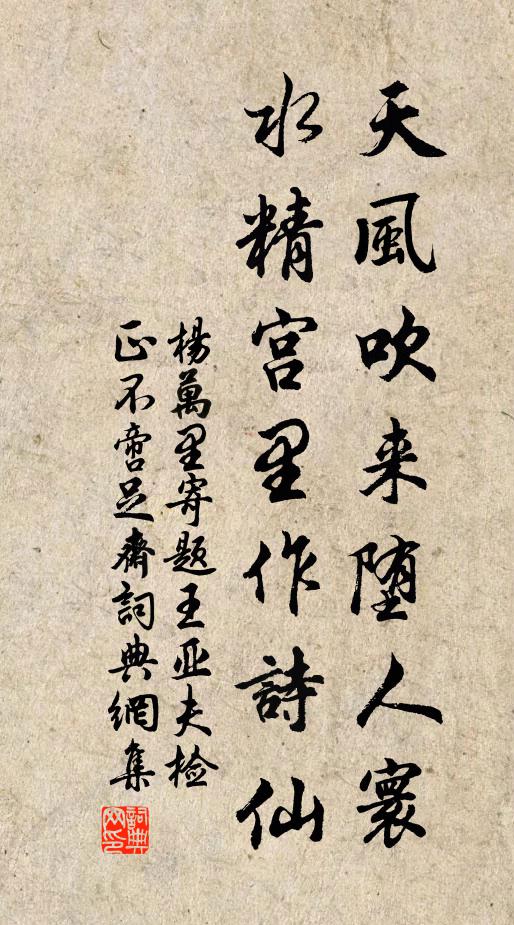 天風吹来堕人寰
水精宫里作詩仙
楊萬里寄题王亚夫检
正不啻足齋詞典網集
詞典
网印